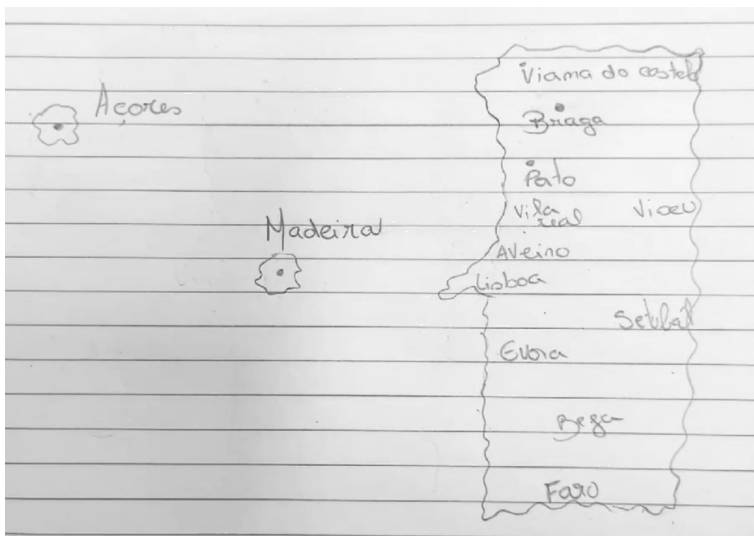 Açores
Madeira
Viama do castelo
Braga
Porto
Vila real
Viseu
Aveiro
Lisboa
Setubal
Evora
Beja
Faro